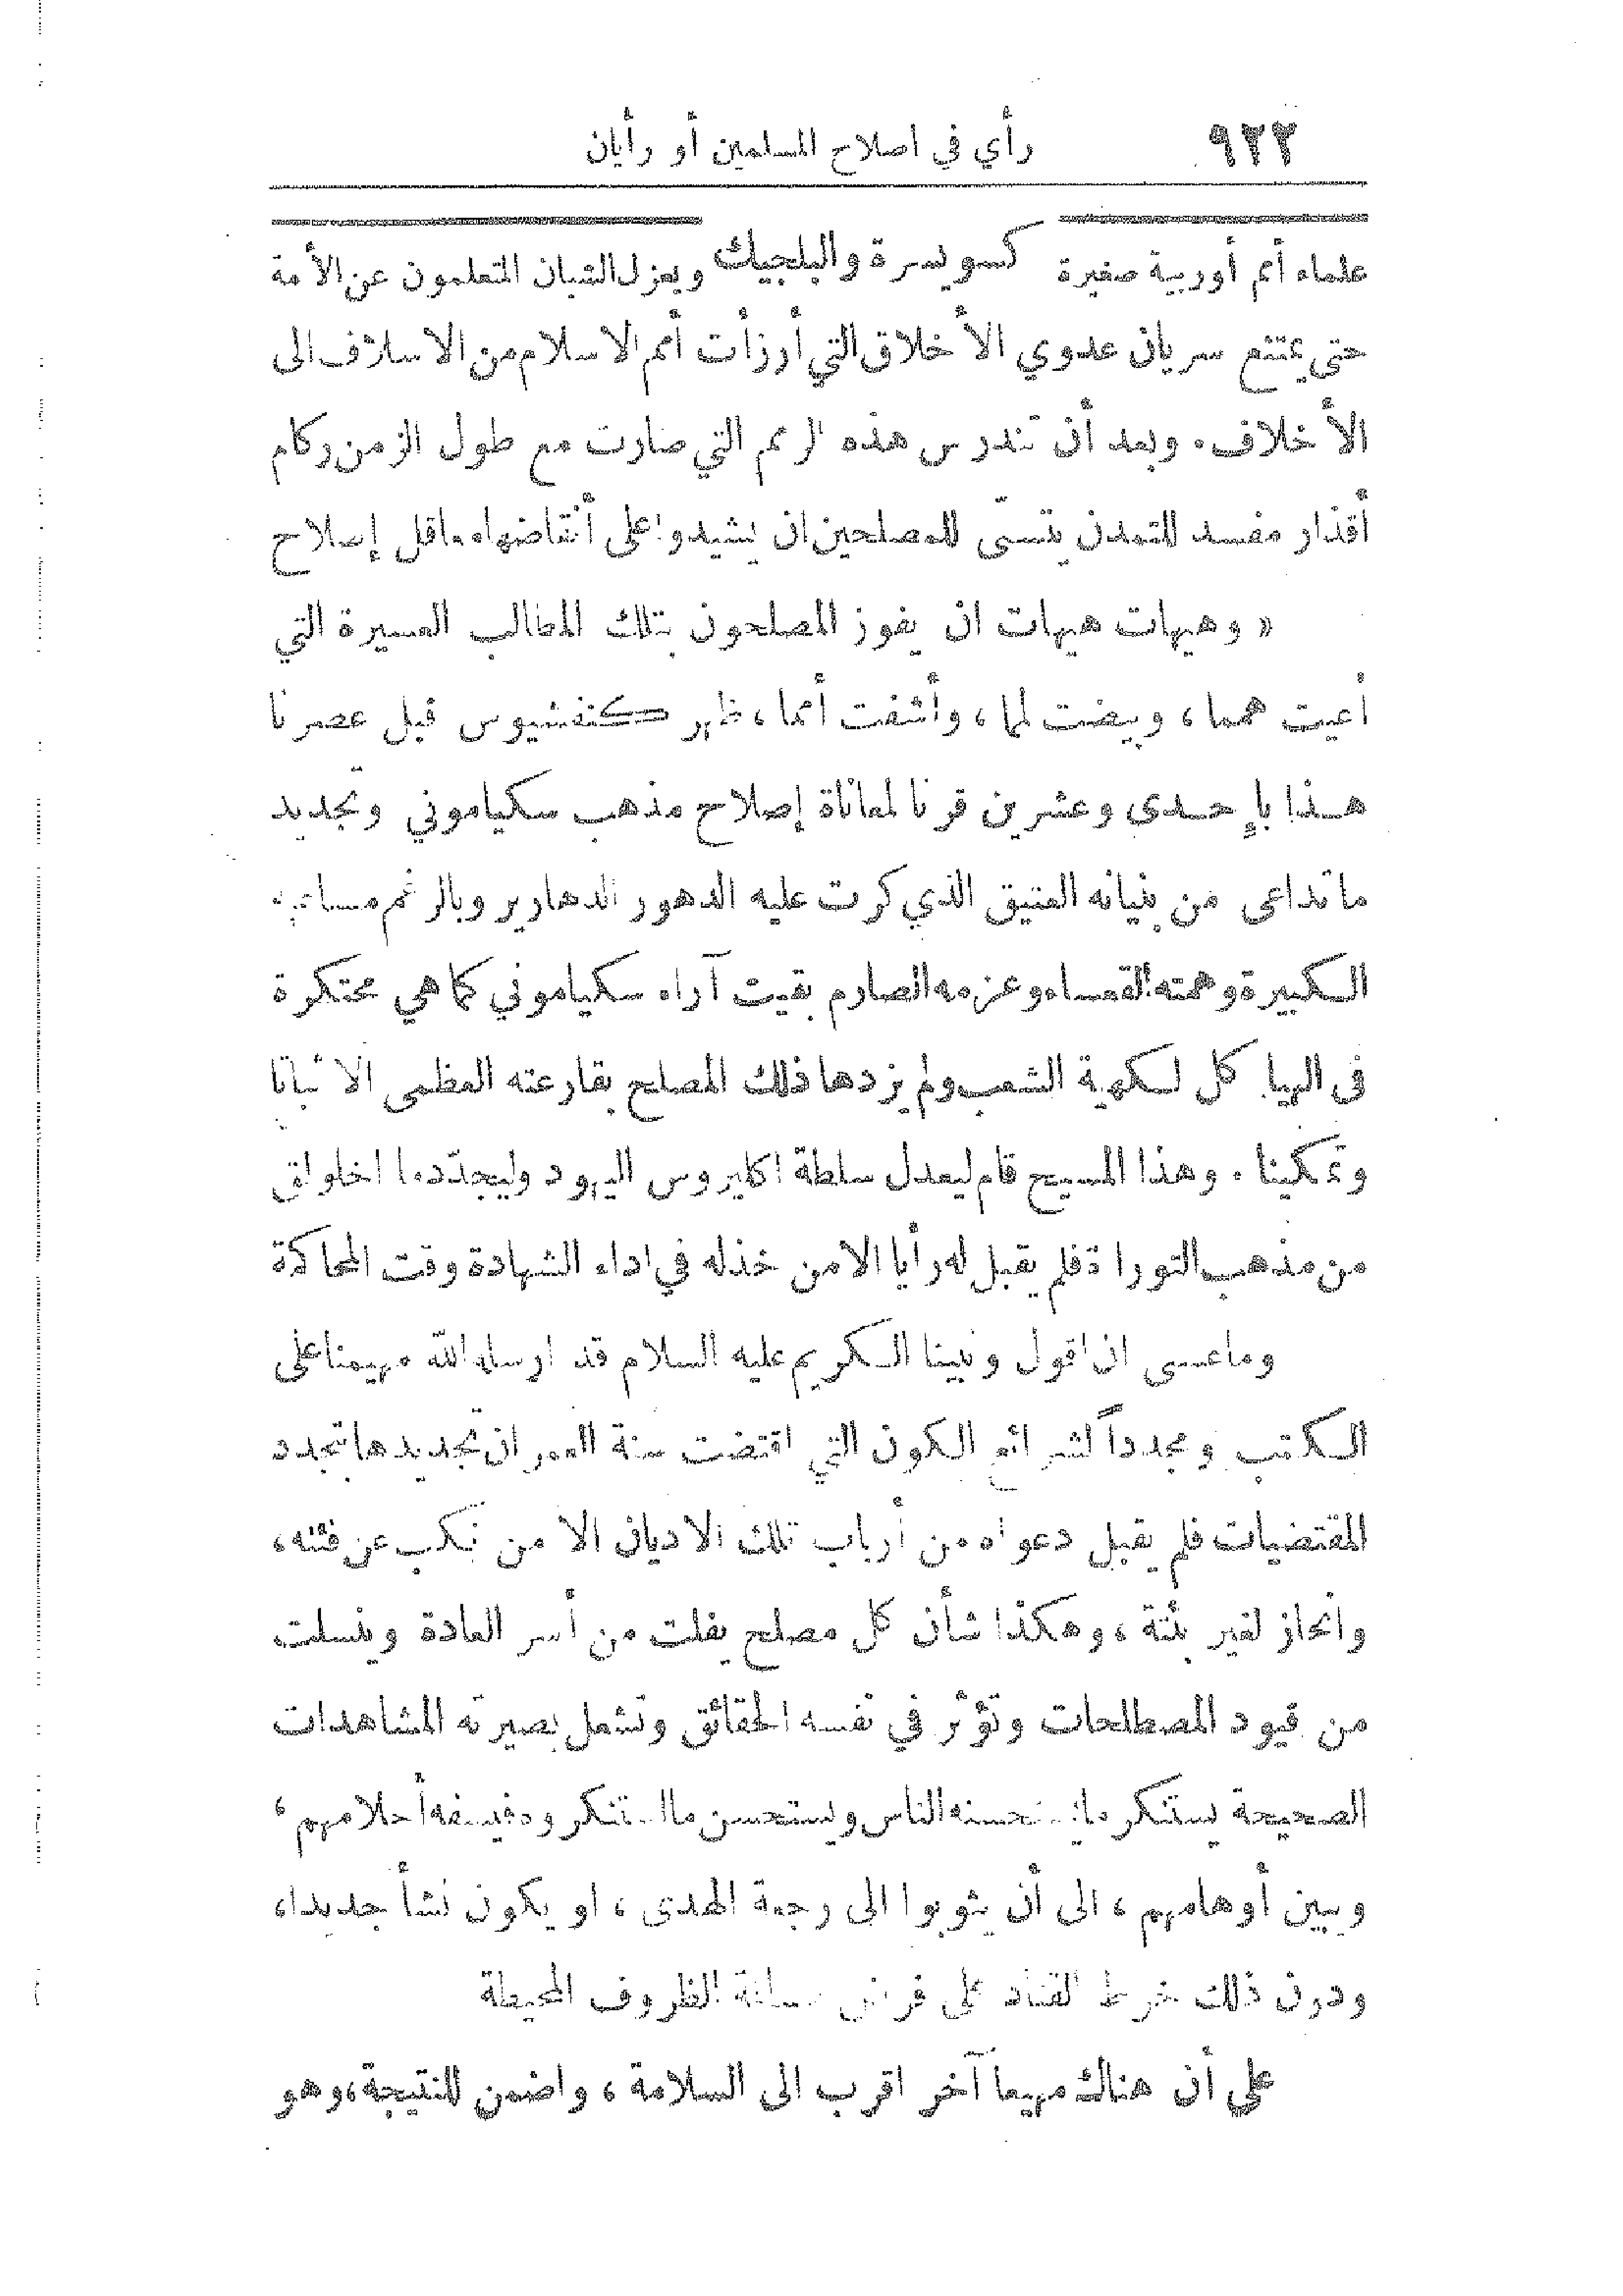 ٩٢٢ رأي في اصلاح المسلمين أو رأيان
علماء أمم أوربية صغيرة كسويسرة والبلجيك ويعزل الشبان المتعلمون عن الأمة
حتى يمتنع سريان عدوي الأخلاق التي أرزأت أمم الاسلام من الاسلاف الى
الأخلاف. وبعد أن تندرس هذه الرمم التي صارت مع طول الزمن ركام
أقذار مفسد للتمدن يتسنّى للمصلحين ان يشيدوا على أنقاضها ماقل إصلاح
« وهيهات هيهات ان يفوز المصلحون بتلك المطالب العسيرة التي
أعيت همما، وبيضت لمما، وأشفت أمما، ظهر كنفشيوس قبل عصرنا
هذا بإحدى وعشرين قرنا لمعاناة إصلاح مذهب سكياموني وتجديد
ماتداعى من بنيانه العتيق الذي كرت عليه الدهور الدهارير وبالرغم
الكبيرة وهمته القعساء وعزمه الصارم بقيت آراء سكياموني كما هي محتكرة
فى الهياكل لكهية الشعب ولم يزدها ذلك المصلح بقارعته العظمى الا ثباتا
وتمكينا. وهذا المسيح قام ليعدل سلطة اكليروس اليهود وليجدّد ما اخلولق
من مذهب التوراة فلم يقبل له رأيا الا من خذله في اداء الشهادة وقت المحاكمة
وما عسى ان اقول ونبينا الكريم عليه السلام قد ارسله الله مهيمنا على
الكتب ومجدداً لشرائع الكون التي اقتضت سنة العمران تجديدها بتجدد
المقتضيات فلم يقبل دعواه من أرباب تلك الاديان الا من نكب عن فئته،
وانحاز لغير بئته، وهكذا شأن كل مصلح يفلت من أسر العادة وينسلت
من قيود المصطلحات وتؤثر في نفسه الحقائق وتشمل بصيرته المشاهدات
الصحيحة يستنكر ما يستحسنه الناس ويستحسن ما استنكروه فيسفه أحلامهم،
ويبين أوهامهم، الى أن يثوبوا الى رجعة الهدى، او يكون نشأ جديدا،
ودون ذلك خرط القتاد على فرض الظروف المحيطة
على أن هناك مهيعا آخر اقرب الى السلامة، واضمن للنتيجة، وهو